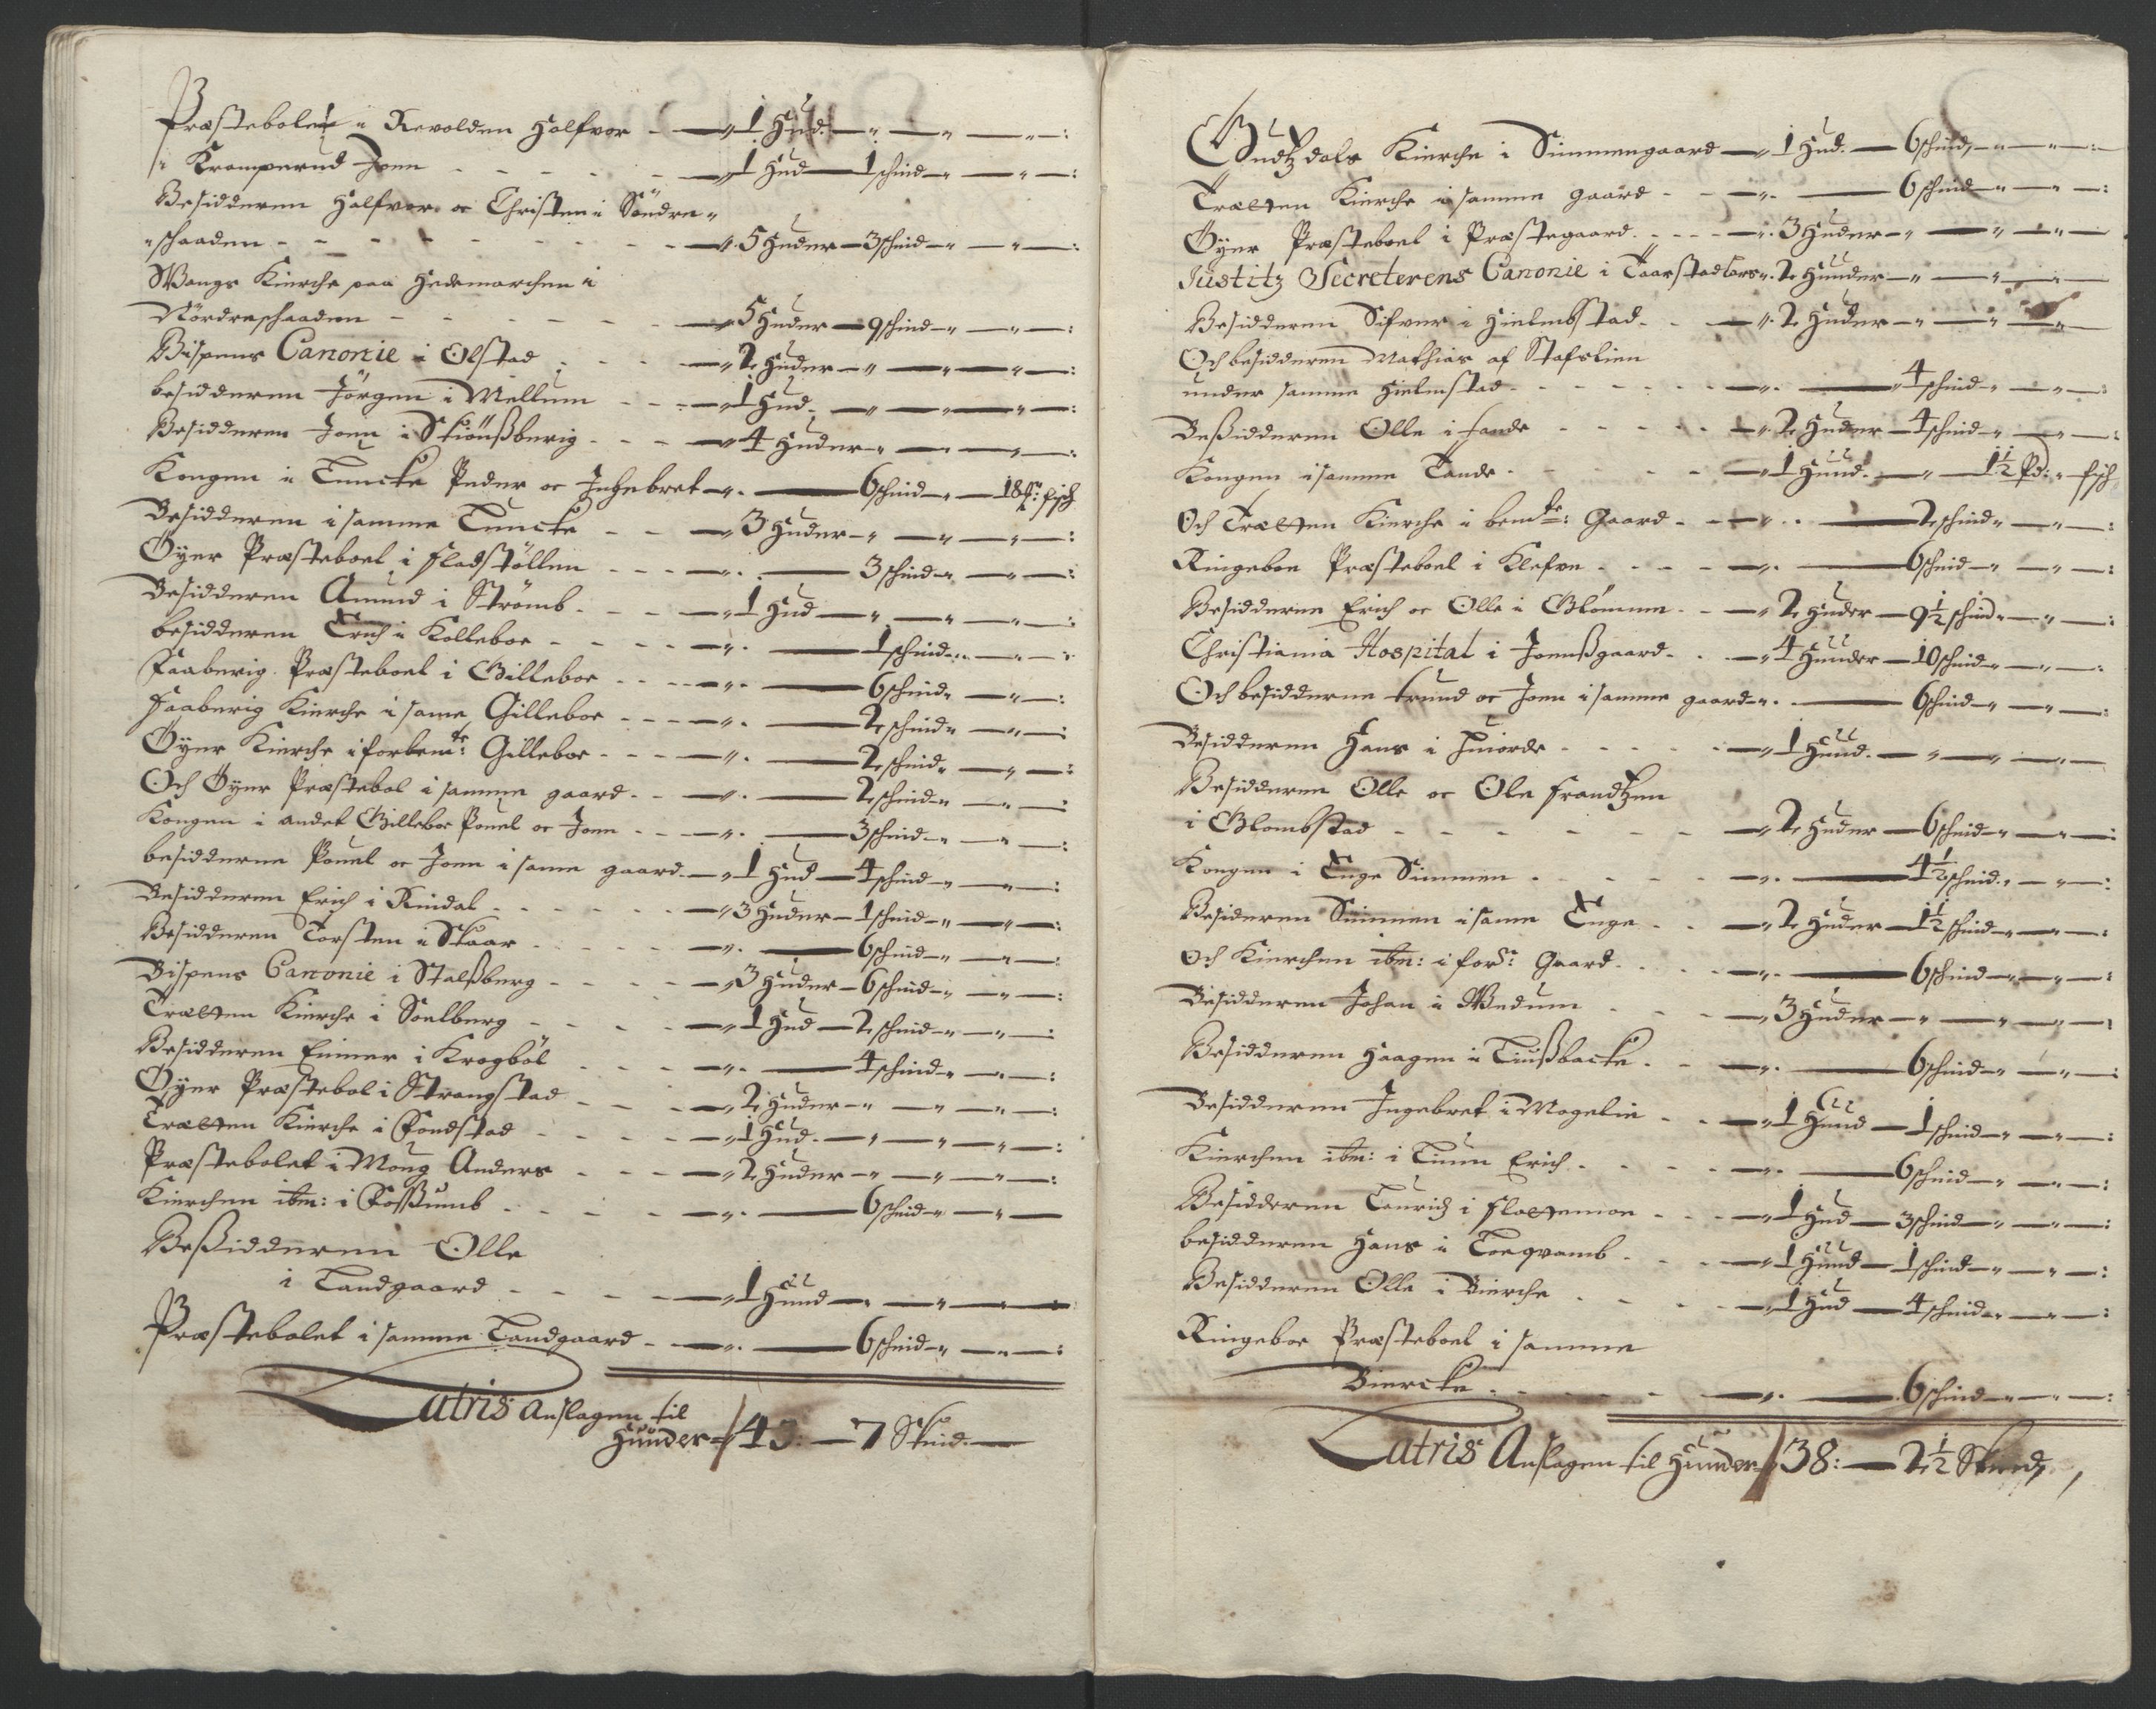 Præstebolet i Revolden Halfvor - 1 Hud
i Kramperud Joen - 1 Hud 1 schind
Besidderen Halfvor oc Christen i Söndre
schaaden - 5 Huder 3 schind
Wangs Kierche paa Hedemarchen i
Nördreschaaden - 5 Huder 9 schind
Bispens Canonie i Olstad - 2 Huder
besidderen Jörgen i Mellum - 1 Hud
Besidderen Joen i Skiönßberig - 4 Huder
Kongen i Tuncke Peder oc Inhebret - 6 schind - 18 fisch
Besidderen i samme Tuncke - 3 Huder
Öyer Præsteboel i Fladstöllen - 3 schind
Besidderen Amund i Strömb - 1 Hud
besidderen Erich i Kolleboe - 1 schind
Faaberig Præsteboel i Gilleboe - 6 schind
Faaberig Kierche i same Gilleboe - 2 schind
Öyer Kierche i forbemte: Gilleboe - 2 schind
Och Öyer Præstebol i samme gaard - 2 schind
Kongen i andet Gilleboe Pouel oc Joen - 3 schind
besidderne Pouel oc Joen i same gaard - 1 Hud 4 schind
Besidderen Erich i Rindal - 3 Huder 1 schind
Besidderen Torsten i Skaar - 6 schind
Bispens Canonie i Stalßberg - 3 Huder 6 schind
Trætten Kierche i Soelberg - 1 Hud 2 schind
Besidderen Einer i Krogböl - 4 schind
Öyer Præstebol i Strangstad - 2 Huder
Trætten Kierche i Fondstad - 1 Hud
Præstebolet i Moug Anders - 2 Huder
Kierchen ibm: i Foßumb - 6 schind
Beßidderen Olle
i Landgaard - 1 Hund
Præstebolet i samme Landgaard - 6 schind
Latris Anslagen til
Hunder 43: 7 Skind
Gudtzdals Kierche i Simmengaard - 1 Hud 6 schind
Trætten Kierche i samme gaard - 6 schind
Öyer Præsteboel i Præstegaard - 3 Huder
Justitz Secreterens Canonie i Taarstad Lars 2 Hunder
Besidderen Sifver i Hielmbstad - 2 Huder
Och besidderen Mathias af Stafslien
under samme Hielmstad - 4 schind
Beßidderen Olle i Lande - 2 Huder 4 schind
Kongen i samme Lande - 1 Hund 1½ Pd: fisch
Och Trætten Kierche i bemte: Gaard - 2 schind
Ringeboe Præsteboel i Klefve - 6 schind
Besidderne Erich oc Olle i Glömme - 2 Huder 9½ schind
Christiania Hospital i Joenßgaard - 4 Hunder 10 schind
Och besidderne Trund oc Joen i samme gaard - 6 schind
Besidderen Hans i - 1 Hund
Besidderen Olle oc Ole Frandtzen
i Glombstad - 2 Huder 6 schind
Kongen i Enge Simmen - 4½ schind
Besideren Simmen i same Enge - 2 Huder 1½ schind
Och Kierchen ibm: i forne: Gaard - 6 schind
Besidderen Johan i Wedum - 3 Huder
Besidderen Haagen i Tiußbacke - 6 schind
Besidderen Ingebret i Mogelie - 1 Hund 1 schind
Kierchen ibm: i Tiuen Erich - 6 schind
Besidderen Lauridz i Flottemoe - 1 Hud 3 schind
besidderen Hans i - 1 Hund 1 schind
Besidderen Olle i Bierche - 1 Hud 4 schind
Ringeboe Præsteboel i samme
Biercke - 6 schind
Latris Anslagen til Hunder 38: 2½ Skind